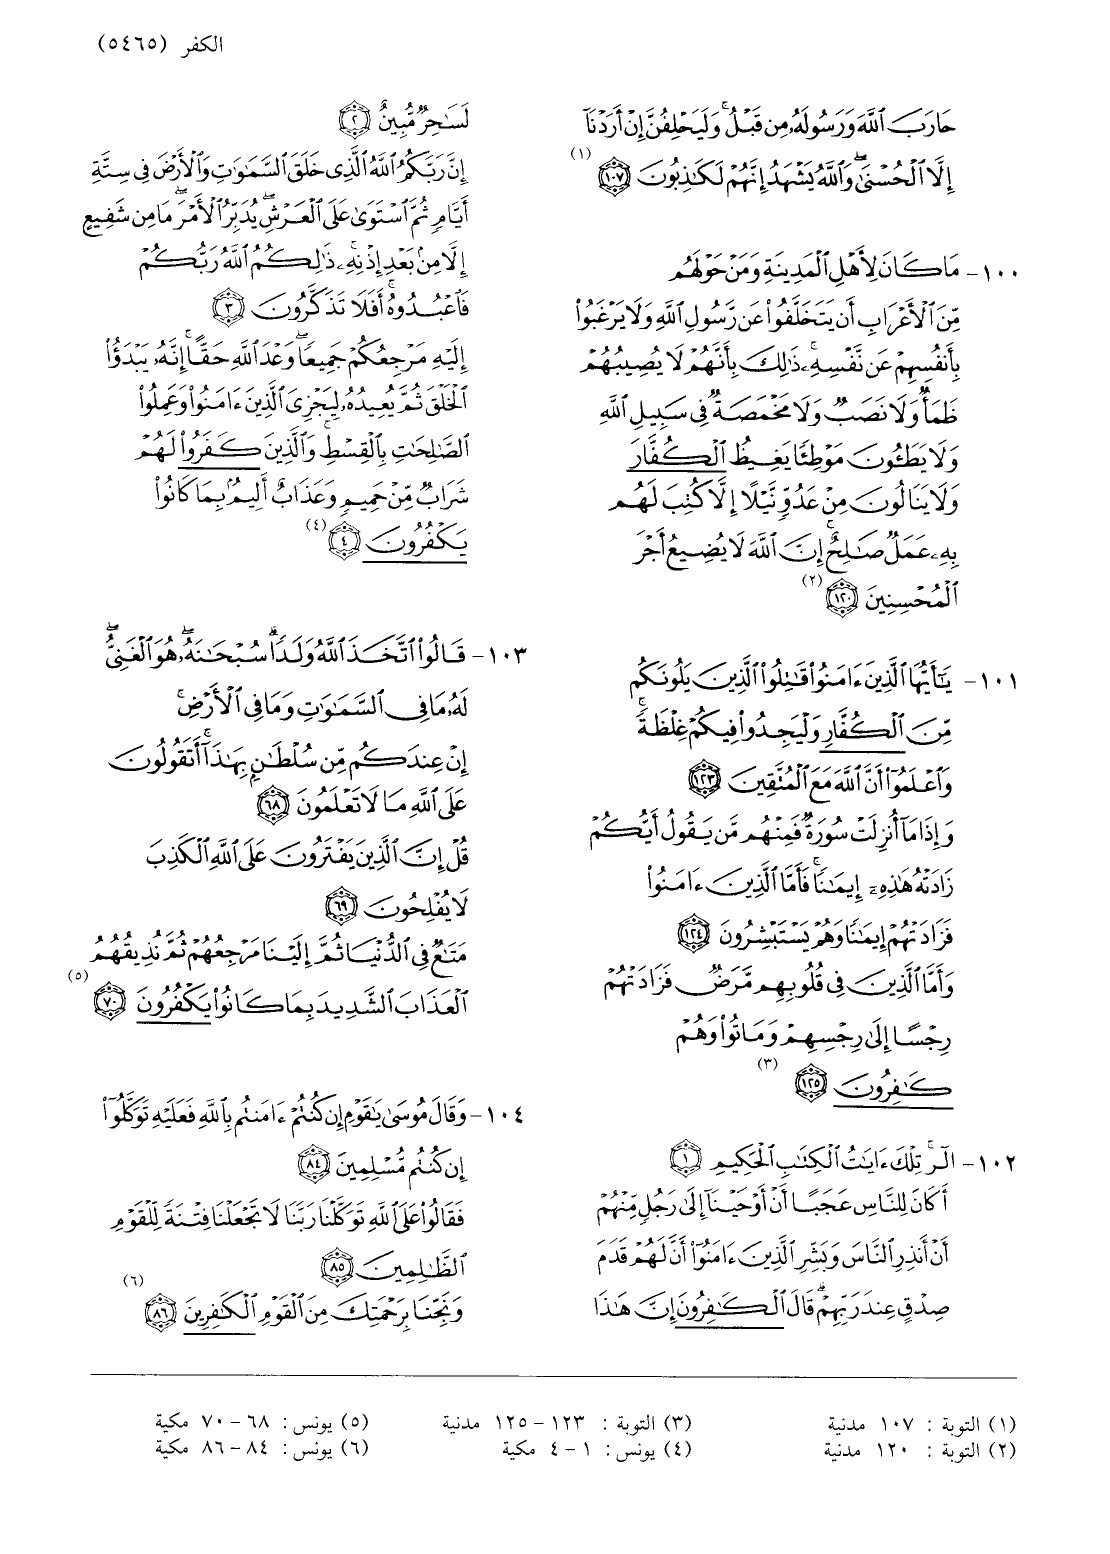 الكفر (٥٤٦٥)
حَارَبَ ٱللَّهَ وَرَسُولَهُۥ مِن قَبْلُ ۚ وَلَيَحْلِفُنَّ إِنْ أَرَدْنَآ
إِلَّا ٱلْحُسْنَىٰ ۖ وَٱللَّهُ يَشْهَدُ إِنَّهُمْ لَكَـٰذِبُونَ ١٠٧ (١)
١٠٠- مَا كَانَ لِأَهْلِ ٱلْمَدِينَةِ وَمَنْ حَوْلَهُم
مِّنَ ٱلْأَعْرَابِ أَن يَتَخَلَّفُوا۟ عَن رَّسُولِ ٱللَّهِ وَلَا يَرْغَبُوا۟
بِأَنفُسِهِمْ عَن نَّفْسِهِۦ ۚ ذَٰلِكَ بِأَنَّهُمْ لَا يُصِيبُهُمْ
ظَمَأٌ وَلَا نَصَبٌ وَلَا مَخْمَصَةٌ فِى سَبِيلِ ٱللَّهِ
وَلَا يَطَـُٔونَ مَوْطِئًا يَغِيظُ ٱلْكُفَّارَ
وَلَا يَنَالُونَ مِنْ عَدُوٍّ نَّيْلًا إِلَّا كُتِبَ لَهُم
بِهِۦ عَمَلٌ صَـٰلِحٌ ۚ إِنَّ ٱللَّهَ لَا يُضِيعُ أَجْرَ
ٱلْمُحْسِنِينَ ١٢٠ (٢)
١٠١- يَـٰٓأَيُّهَا ٱلَّذِينَ ءَامَنُوا۟ قَـٰتِلُوا۟ ٱلَّذِينَ يَلُونَكُم
مِّنَ ٱلْكُفَّارِ وَلْيَجِدُوا۟ فِيكُمْ غِلْظَةً ۚ
وَٱعْلَمُوٓا۟ أَنَّ ٱللَّهَ مَعَ ٱلْمُتَّقِينَ ١٢٣
وَإِذَا مَآ أُنزِلَتْ سُورَةٌ فَمِنْهُم مَّن يَقُولُ أَيُّكُمْ
زَادَتْهُ هَـٰذِهِۦٓ إِيمَـٰنًا ۚ فَأَمَّا ٱلَّذِينَ ءَامَنُوا۟
فَزَادَتْهُمْ إِيمَـٰنًا وَهُمْ يَسْتَبْشِرُونَ ١٢٤
وَأَمَّا ٱلَّذِينَ فِى قُلُوبِهِم مَّرَضٌ فَزَادَتْهُمْ
رِجْسًا إِلَىٰ رِجْسِهِمْ وَمَاتُوا۟ وَهُمْ
كَـٰفِرُونَ ١٢٥ (٣)
١٠٢- الٓر ۚ تِلْكَ ءَايَـٰتُ ٱلْكِتَـٰبِ ٱلْحَكِيمِ ١
أَكَانَ لِلنَّاسِ عَجَبًا أَنْ أَوْحَيْنَآ إِلَىٰ رَجُلٍ مِّنْهُمْ
أَنْ أَنذِرِ ٱلنَّاسَ وَبَشِّرِ ٱلَّذِينَ ءَامَنُوٓا۟ أَنَّ لَهُمْ قَدَمَ
صِدْقٍ عِندَ رَبِّهِمْ ۗ قَالَ ٱلْكَـٰفِرُونَ إِنَّ هَـٰذَا
لَسَـٰحِرٌ مُّبِينٌ ٢
إِنَّ رَبَّكُمُ ٱللَّهُ ٱلَّذِى خَلَقَ ٱلسَّمَـٰوَٰتِ وَٱلْأَرْضَ فِى سِتَّةِ
أَيَّامٍ ثُمَّ ٱسْتَوَىٰ عَلَى ٱلْعَرْشِ ۖ يُدَبِّرُ ٱلْأَمْرَ ۖ مَا مِن شَفِيعٍ
إِلَّا مِنۢ بَعْدِ إِذْنِهِۦ ۚ ذَٰلِكُمُ ٱللَّهُ رَبُّكُمْ
فَٱعْبُدُوهُ ۚ أَفَلَا تَذَكَّرُونَ ٣
إِلَيْهِ مَرْجِعُكُمْ جَمِيعًا ۖ وَعْدَ ٱللَّهِ حَقًّا ۚ إِنَّهُۥ يَبْدَؤُا۟
ٱلْخَلْقَ ثُمَّ يُعِيدُهُۥ لِيَجْزِىَ ٱلَّذِينَ ءَامَنُوا۟ وَعَمِلُوا۟
ٱلصَّـٰلِحَـٰتِ بِٱلْقِسْطِ ۚ وَٱلَّذِينَ كَفَرُوا۟ لَهُمْ
شَرَابٌ مِّنْ حَمِيمٍ وَعَذَابٌ أَلِيمٌۢ بِمَا كَانُوا۟
يَكْفُرُونَ ٤ (٤)
١٠٣- قَالُوا۟ ٱتَّخَذَ ٱللَّهُ وَلَدًا ۗ سُبْحَـٰنَهُۥ ۖ هُوَ ٱلْغَنِىُّ ۖ
لَهُۥ مَا فِى ٱلسَّمَـٰوَٰتِ وَمَا فِى ٱلْأَرْضِ ۚ
إِنْ عِندَكُم مِّن سُلْطَـٰنٍۭ بِهَـٰذَآ ۚ أَتَقُولُونَ
عَلَى ٱللَّهِ مَا لَا تَعْلَمُونَ ٦٨
قُلْ إِنَّ ٱلَّذِينَ يَفْتَرُونَ عَلَى ٱللَّهِ ٱلْكَذِبَ
لَا يُفْلِحُونَ ٦٩
مَتَـٰعٌ فِى ٱلدُّنْيَا ثُمَّ إِلَيْنَا مَرْجِعُهُمْ ثُمَّ نُذِيقُهُمُ
ٱلْعَذَابَ ٱلشَّدِيدَ بِمَا كَانُوا۟ يَكْفُرُونَ ٧٠ (٥)
١٠٤- وَقَالَ مُوسَىٰ يَـٰقَوْمِ إِن كُنتُمْ ءَامَنتُم بِٱللَّهِ فَعَلَيْهِ تَوَكَّلُوٓا۟
إِن كُنتُم مُّسْلِمِينَ ٨٤
فَقَالُوا۟ عَلَى ٱللَّهِ تَوَكَّلْنَا رَبَّنَا لَا تَجْعَلْنَا فِتْنَةً لِّلْقَوْمِ
ٱلظَّـٰلِمِينَ ٨٥
وَنَجِّنَا بِرَحْمَتِكَ مِنَ ٱلْقَوْمِ ٱلْكَـٰفِرِينَ ٨٦ (٦)
(١) التوبة : ١٠٧ مدنية
(٢) التوبة : ١٢٠ مدنية
(٣) التوبة : ١٢٣ - ١٢٥ مدنية
(٤) يونس : ١ - ٤ مكية
(٥) يونس : ٦٨ - ٧٠ مكية
(٦) يونس : ٨٤ - ٨٦ مكية